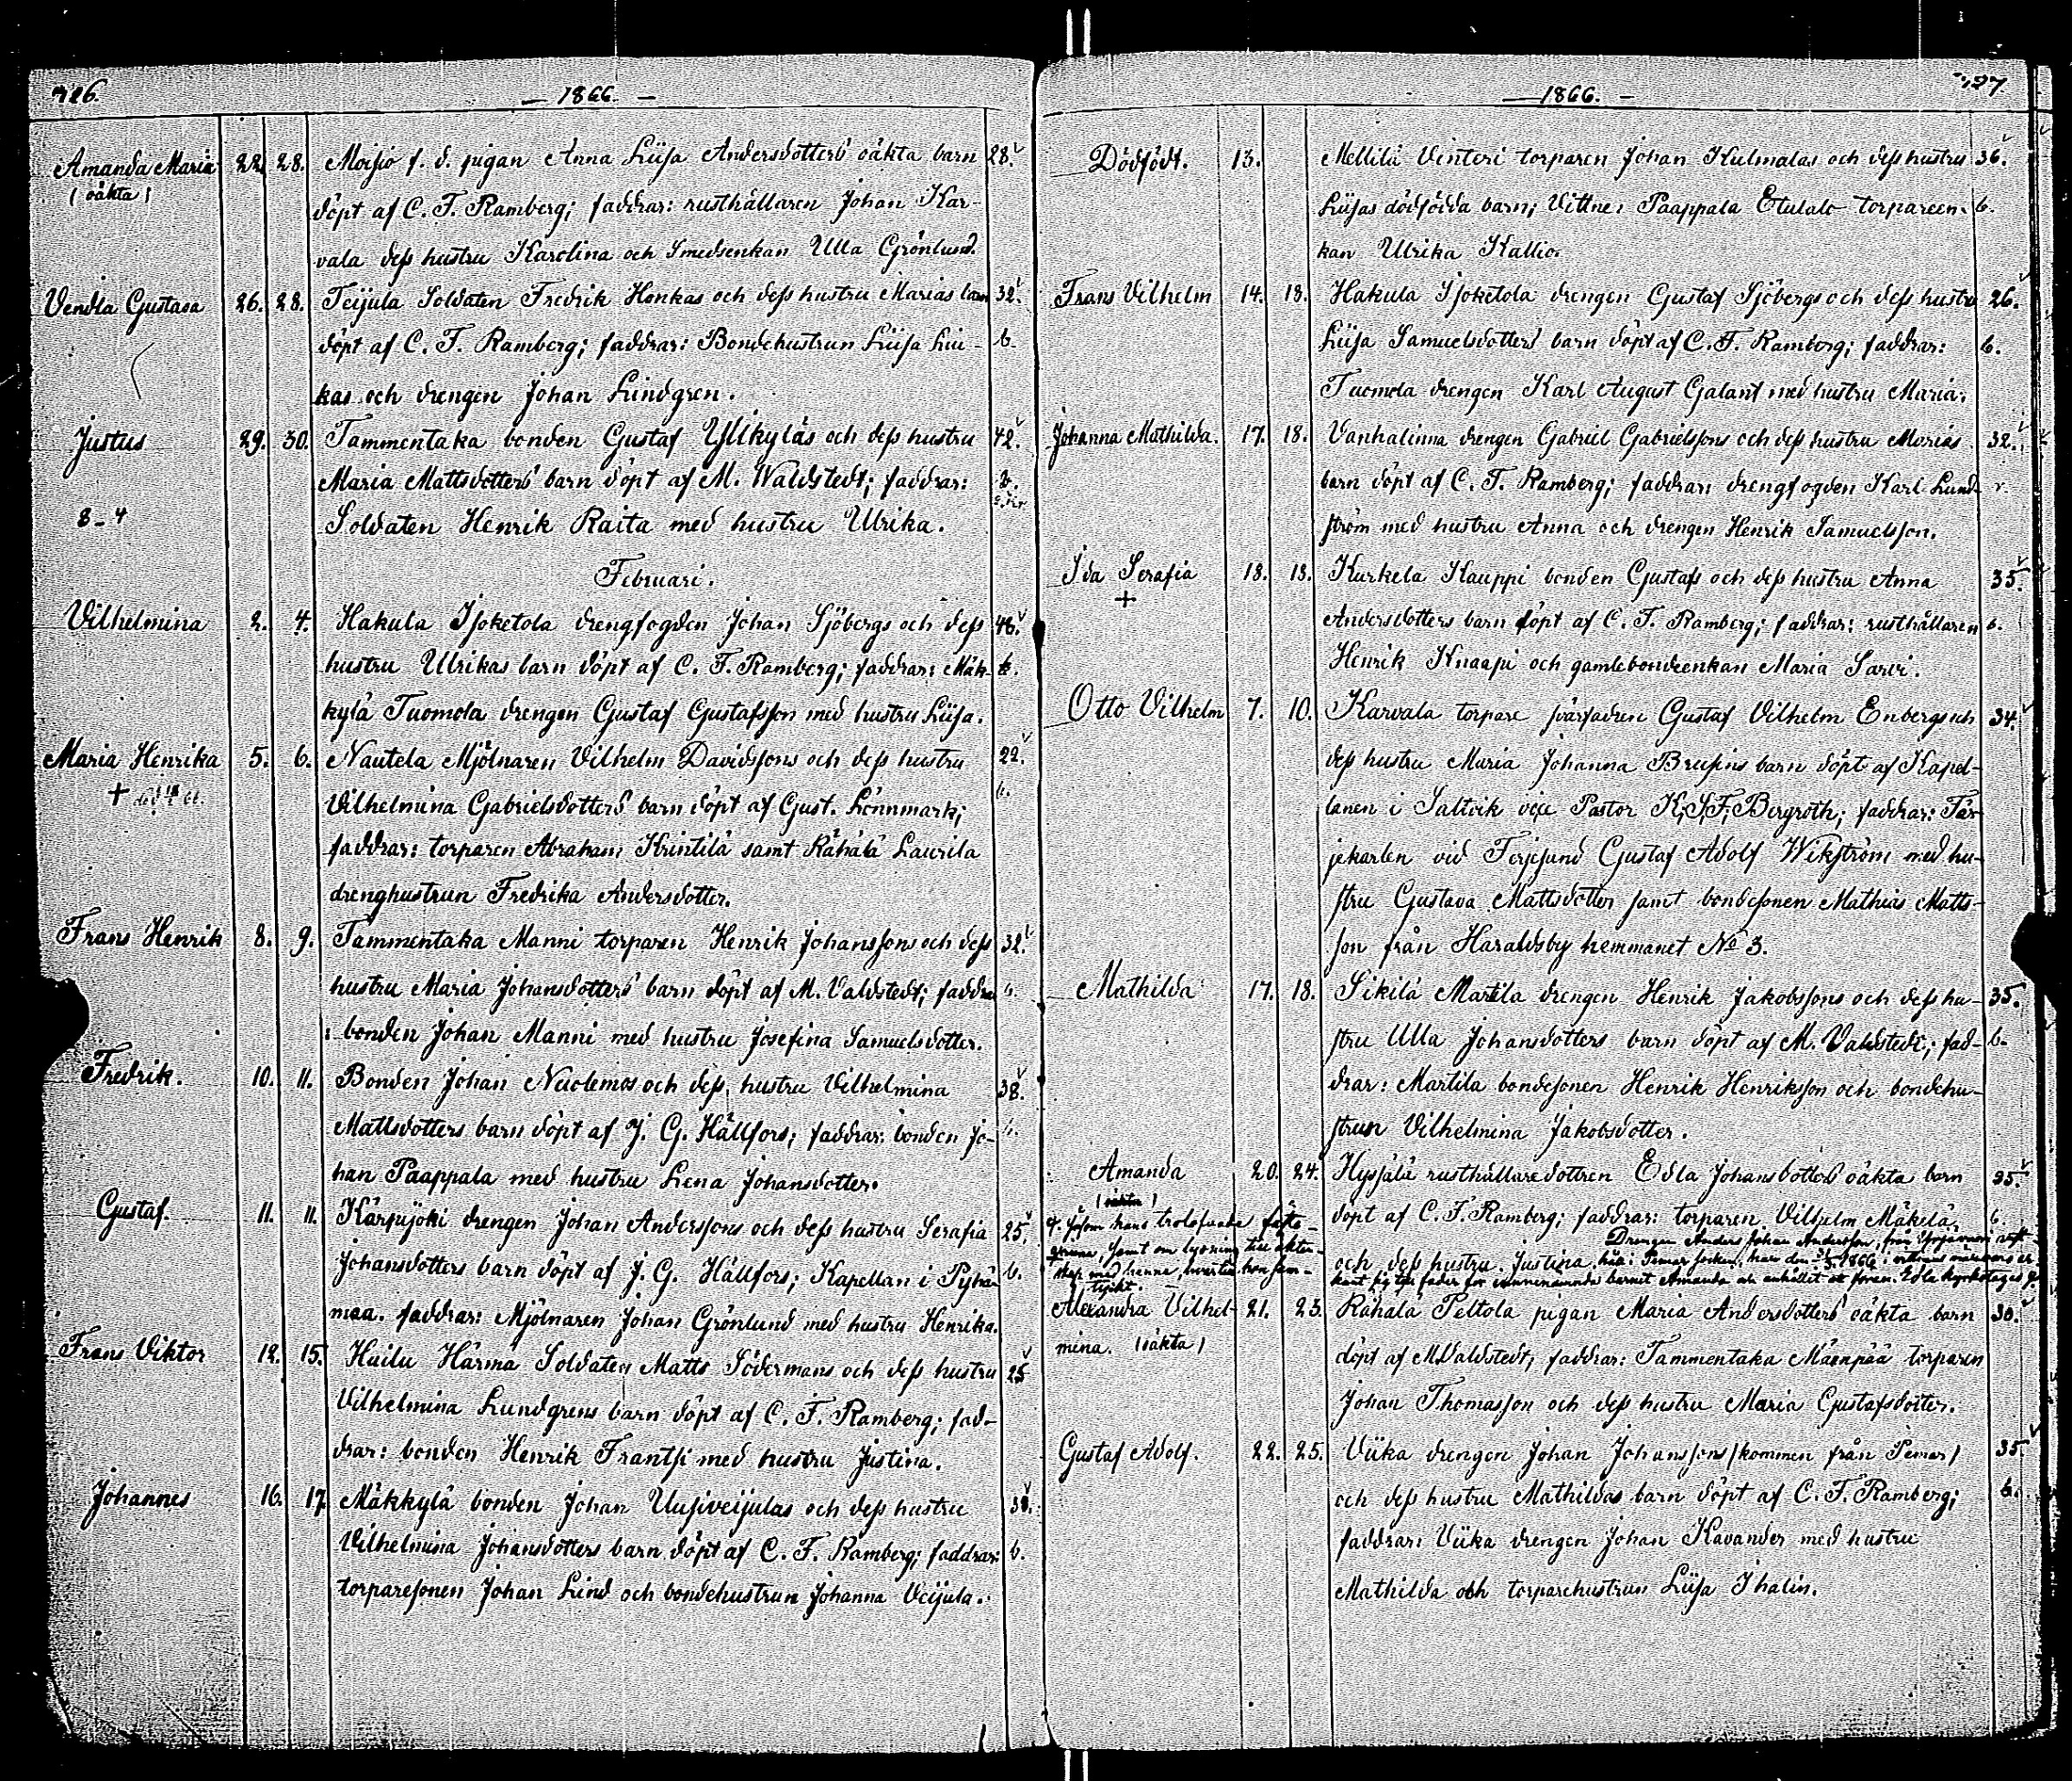 726.
— 1866. —
Amanda Maria 22. 28. Moisio f. d. pigan Anna Liisa Andersdotters oäkta barn 28.
(oäkta) döpt af C. F. Ramberg; faddrar: rusthållaren Johan Kar-
vala dess hustru Karolina och Smedsenkan Ulla Grönlund.
Vendla Gustava 26. 28. Teijula Soldaten Fredrik Honkas och dess hustru Marias barn 32.
döpt af C. F. Ramberg; faddrar: Bondehustrun Liisa Liu- b.
kas och drengen Johan Lindgren.
Justus 29. 30. Tammentaka bonden Gustaf Yllkyläs och dess hustru 42.
Maria Mattsdotters barn döpt af M. Waldstedt; faddrar: b.
8-4 Soldaten Henrik Raita med hustru Ulrika.
Februari.
Vilhelmina 2. 4. Hakula Isoketola drengfogden Johan Sjöbergs och dess 46.
hustru Ulrikas barn döpt af C. F. Ramberg; faddrar: Mäk- b.
kylä Tuomola drengen Gustaf Gustafsson med hustru Liisa.
Maria Henrika 5. 6. Nautela Mjölnaren Vilhelm Davidssons och dess hustru 22.
+ Vilhelmina Gabrielsdotters barn döpt af Gust. Lönnmark;
faddrar: torparen Abraham Krintilä samt Rähälä Laurila
drenghustrun Fredrika Andersdotter.
Frans Henrik 8. 9. Tammentaka Manni torparen Henrik Johanssons och dess 32.
hustru Maria Johansdotters barn döpt af M. Valdstedt; faddra
: bonden Johan Manni med hustru Josefina Samuelsdotter.
Fredrik. 10. 11. Bonden Johan Nuolemos och dess hustru Vilhelmina 38.
Mattsdotters barn döpt af J. G. Hällfors; faddrar: bonden Jo-
han Paappala med hustru Lena Johansdotter.
Gustaf. 11. 11. Kärpijöki drengen Johan Anderssons och dess hustru Serafia 25.
Johansdotters barn döpt af J. G. Hällfors; Kapellan i Pyhä- b.
maa. faddrar: Mjölnaren Johan Grönlund med hustru Henrika.
Frans Viktor 12. 15. Huilu Härmä Soldaten Matts Södermans och dess hustru 25
Vilhelmina Lundgrens barn döpt af C. F. Ramberg; fad-
drar: bonden Henrik Frantsi med hustru Justina.
Johannes 16. 17. Mäkkylä bonden Johan Uusiveijulas och dess hustru
Vilhelmina Johansdotters barn döpt af C. F. Ramberg; faddrar: b.
torparesonen Johan Lind och bondehustrun Johanna Veijula.
727.
— 1866. —
Dödfödt. 13. Mellilä Vinteri torparen Johan Kulmalas och dess hustru 36.
Liisas dödfödda barn; Vittne: Paappala Etulalo torpareen- b.
kan Ulrika Kallio.
Frans Vilhelm 14. 18. Hakula Isoketola drengen Gustaf Sjöbergs och dess hustru 26.
Liisa Samuelsdotters barn döpt af C. F. Ramberg; faddrar: b.
Tuomola drengen Karl August Galant med hustru Maria.
Johanna Mathilda. 17. 18. Vanhalinna drengen Gabriel Gabrielssons och dess hustru Marias 32.
barn döpt af C. F. Ramberg; faddrar: drengfogden Karl Lund-
ström med hustru Anna och drengen Henrik Samuelsson.
Ida Serafia 18. 18. Kurkela Kauppi bonden Gustafs och dess hustru Anna 35.
+ Andersdotters barn döpt af C. F. Ramberg; faddrar: rusthållaren b.
Henrik Knaapi och gamlebondeenkan Maria Sarvi.
Otto Vilhelm 7. 10. Karvala torpare svärfadren Gustaf Vilhelm Enbergs och 34.
dess hustru Maria Johanna Brusins barn döpt af Kapel-
lanen i Saltvik vice Pastor K. S. F. Bergroth; faddrar: Fär-
jekarlen vid Ferjesund Gustaf Adolf Wikström med hu-
stru Gustava Mattsdotter samt bondesonen Mathias Matts-
son från Haraldsby hemmanet No 3.
Mathilda 17. 18. Sikilä Martila drengen Henrik Jakobssons och dess hu- 35.
stru Ulla Johansdotters barn döpt af M. Valdstedt; fad- b.
drar: Martila bondesonen Henrik Henriksson och bondehu-
strun Vilhelmina Jakobsdotter.
Amanda 20. 24. Hypjälä rusthållaredottren Edla Johansdotters oäkta barn
(oäkta) döpt af C. F. Ramberg; faddrar: torparen Vilhelm Mäkelä b.
Drengen Anders Johan Andersson, från
och dess hustru Justina. här i Pemar socken, har den 1866 i vittnens närvaro er-
känt sig till fader för vinnenämnde barnet Amanda och anhållet att föran. Edla kyrkotages
såsom hans trolofvade fäste-
qvinna, samt om lysning till äkten-
skap med henne, hvartill hon sam-
tyckt.
Alexandra Vilhel- 21. 23. Rähälä Peltola pigan Maria Andersdotters oäkta barn 30.
mina. (oäkta) döpt af M. Valdstedt; faddrar: Tammentaka Mäenpää torparen
Johan Thomasson och dess hustru Maria Gustafsdotter.
Gustaf Adolf. 22. 25. Viika drengen Johan Johanssons (kommen från Pemar) 35.
och dess hustru Mathildas barn döpt af C. F. Ramberg; b.
faddrar: Viika drengen Johan Kavander med hustru
Mathilda och torparehustrun Liisa Ihalin.